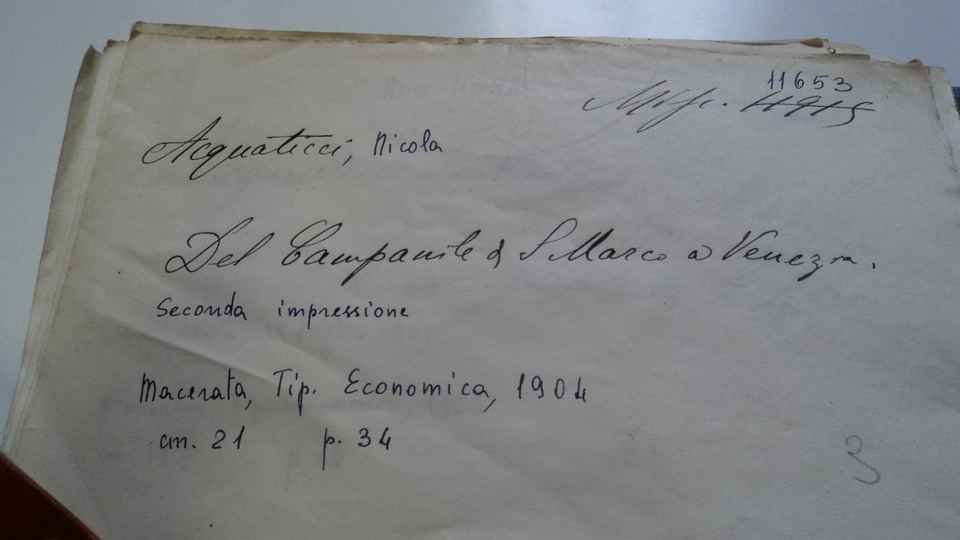 11653
Misc. 4915
Acquaticci, Nicola
Del Campanile di S Marco a Venezia.
Seconda impressione
Macerata, Tip. Economica, 1904
cm. 21 p. 34
3